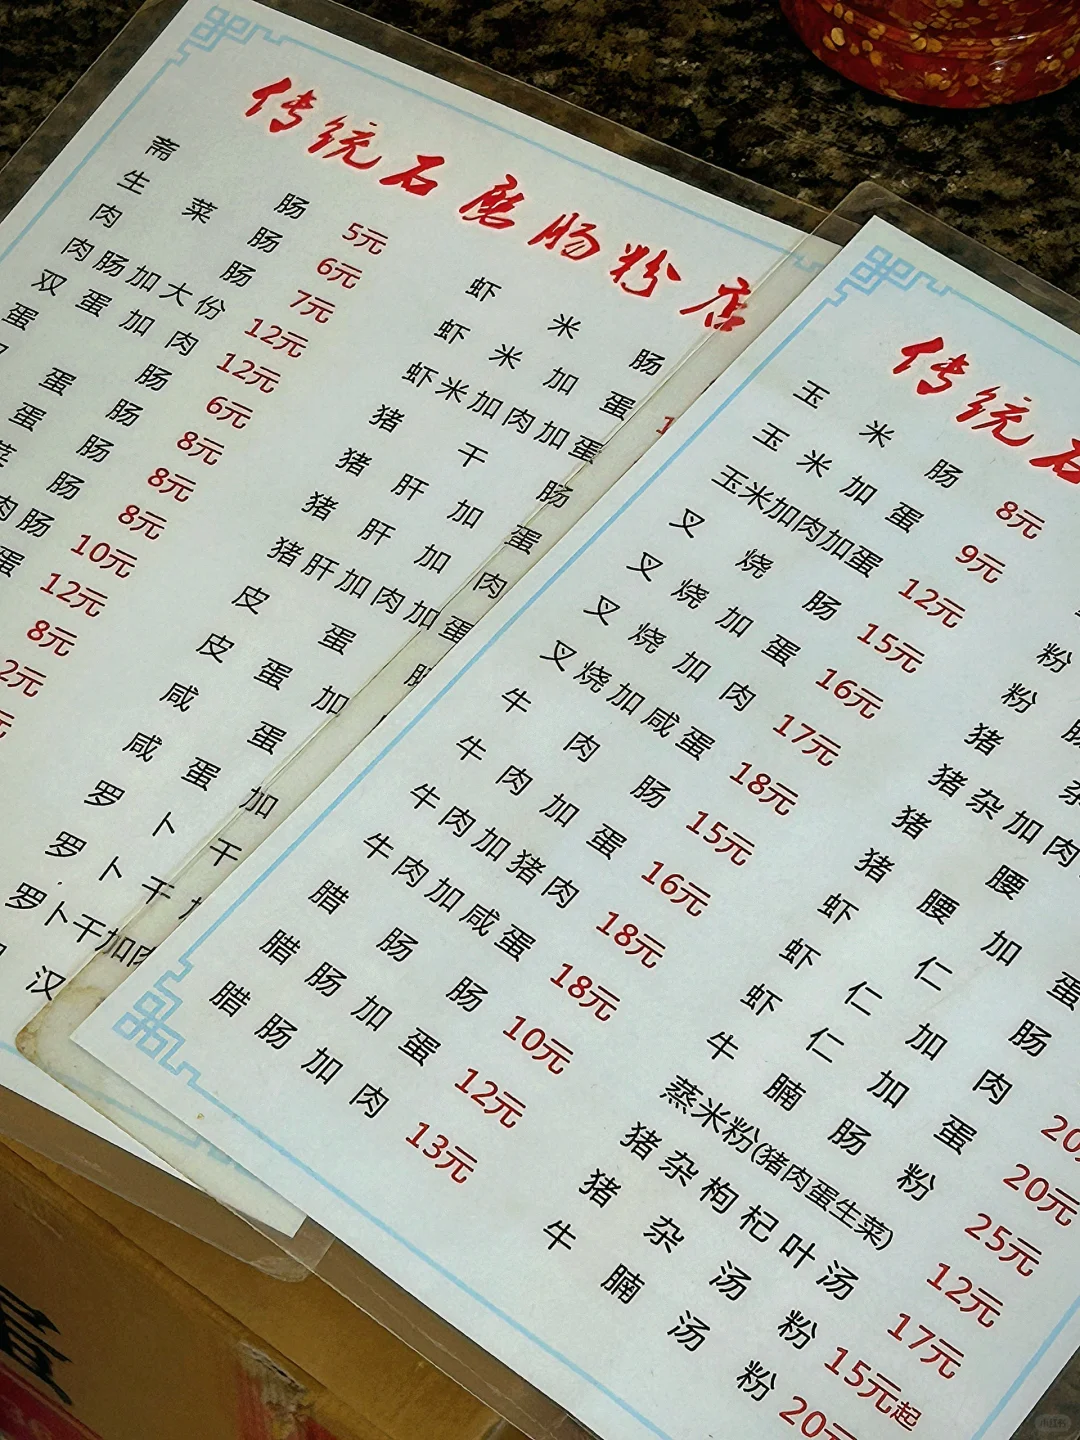 传统石磨肠粉店
斋肠 5元
生菜肠 6元
肉肠 7元
肉肠加大份 12元
双蛋加肉 12元
蛋肠 6元
蛋肠 8元
蛋肠 8元
菜肠 8元
肉肠 10元
蛋 12元
8元
2元
元
虾米肠
虾米加蛋
虾米加肉加蛋
猪干肠
猪肝加蛋
猪肝加肉
猪肝加肉加蛋
皮蛋
皮蛋加
咸蛋
咸蛋加
罗卜干
罗卜干
罗卜干加肉
汉
传统石
玉米肠 8元
玉米加蛋 9元
玉米加肉加蛋 12元
叉烧肠 15元
叉烧加蛋 16元
叉烧加肉 17元
叉烧加咸蛋 18元
牛肉肠 15元
牛肉加蛋 16元
牛肉加猪肉 18元
牛肉加咸蛋 18元
腊肠肠 10元
腊肠加蛋 12元
腊肠加肉 13元
粉
粉肠
猪杂
猪杂加肉
猪腰
猪腰加蛋
虾仁肠
虾仁加肉 20
虾仁加蛋 20元
牛腩肠粉 25元
蒸米粉(猪肉蛋生菜) 12元
猪杂枸杞叶汤 17元
猪杂汤粉 15元起
牛腩汤粉 20元
蛋
小红书